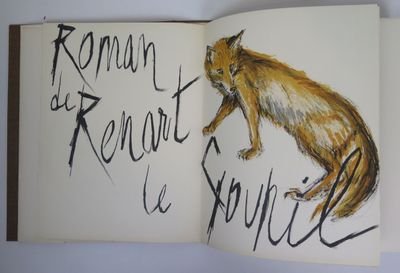 Roman
de
Renart
le Goupil